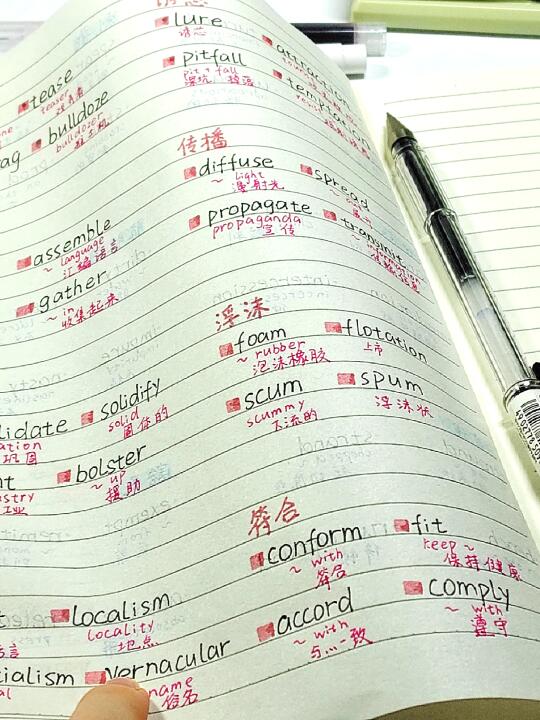 lure
诱惑
attraction
pitfall
pit + fall
temptation
tease
teaser
bulldoze
bulldozer
推土机
传播
diffuse
~ light
漫射光
spread
propagate
propaganda
宣传
transmit
~ information
assemble
~ language
汇编语言
gather
~ in
收集起来
浮沫
foam
~ rubber
泡沫橡胶
flotation
上市
scum
scummy
下流的
spum
浮沫状
solidify
solid
固体的
lidate
ation
巩固
bolster
~ up
援助
nt
stry
工业
符合
conform
~ with
符合
fit
keep ~
保持健康
accord
~ with
与…一致
comply
~ with
遵守
localism
locality
地点
cialism
al
vernacular
name
俗名